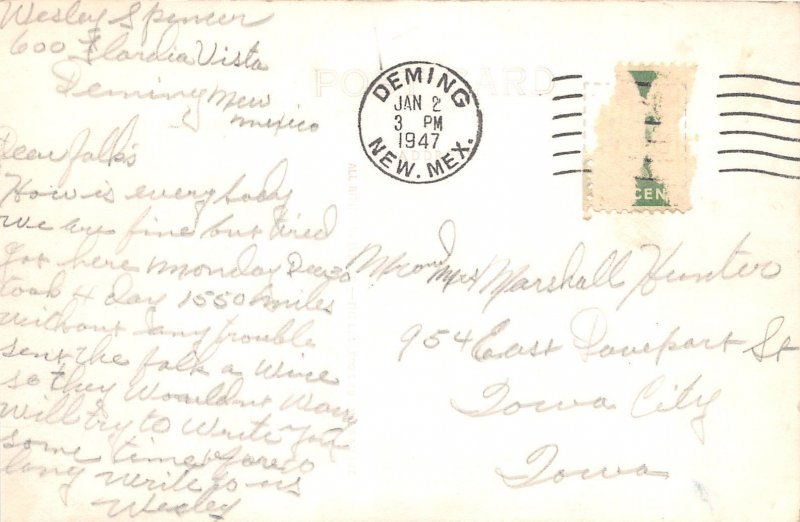 Wesley Spencer
600 Flordia Vista
Deming New
mexico
Dear folks
How is everybody
we are fine but tired
got here monday Dec 30
took 4 day 1550 miles
without any trouble
sent the folk a wire
so they wouldnt worry
will try to write you
some time before
long write to us
Wesley
POST CARD
DEMING
JAN 2
3 PM
1947
NEW. MEX.
CEN
Mr and Mrs Marshall Hunter
954 East Davenport St
Iowa City
Iowa